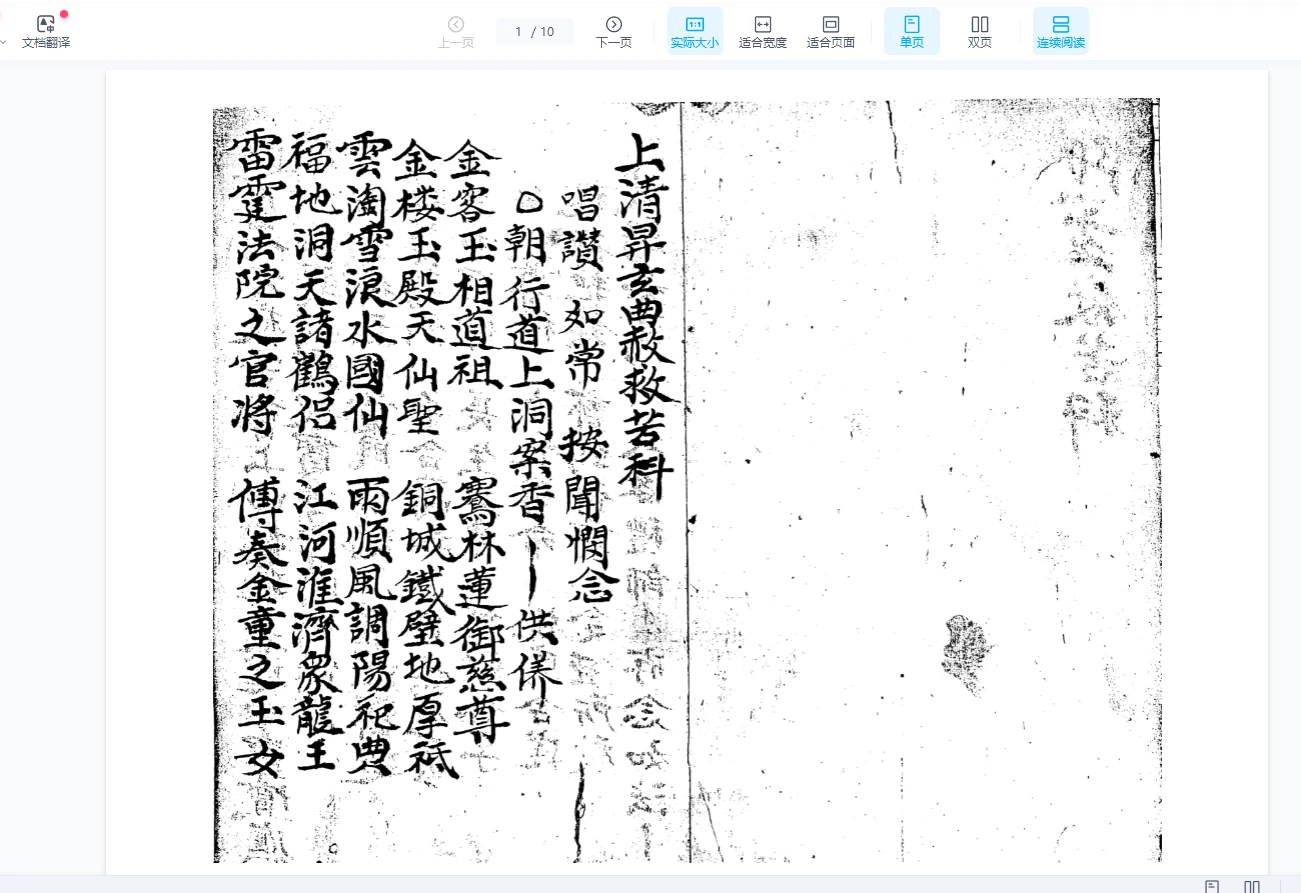 文档翻译
上一页
1 / 10
下一页
1:1
实际大小
适合宽度
适合页面
单页
双页
连续阅读
上清昇玄曲赦救苦科
唱讃 如常 按 聞憫念
〇朝行道上洞案香丨丨供侢
金容玉相道祖 騫林蓮御慈尊
金楼玉殿天仙聖 銅城鐵壁地厚祇
雲淘雪浪水國仙 雨順風調陽祀典
福地洞天諸鶴侣 江河淮濟眾龍王
雷霆法院之官將 傅奏金童之玉女